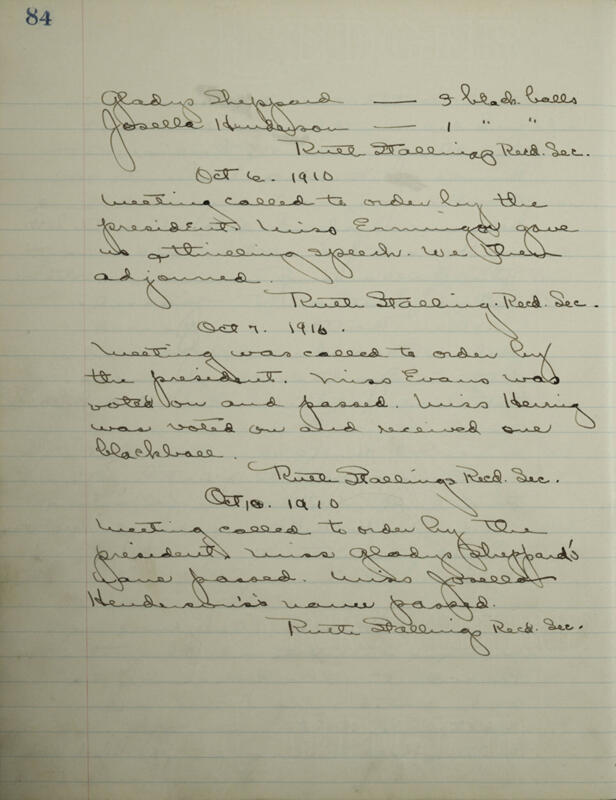 84
Gladys Sheppard — 3 black balls
Josella Henderson — 1 " "
Ruth Stallings Recd. Sec.
Oct 6. 1910
Meeting called to order by the
president. Miss Ermingor gave
us a thrilling speech. We then
adjourned.
Ruth Stallings. Recd. Sec.
Oct 7. 1910.
Meeting was called to order by
the president. Miss Evans was
voted on and passed. Miss Herrig
was voted on and received one
blackball.
Ruth Stallings Recd. Sec.
Oct 10. 1910
Meeting called to order by the
president. Miss Gladys Sheppard's
name passed. Miss Josella
Henderson's's name passed.
Ruth Stallings Recd. Sec.